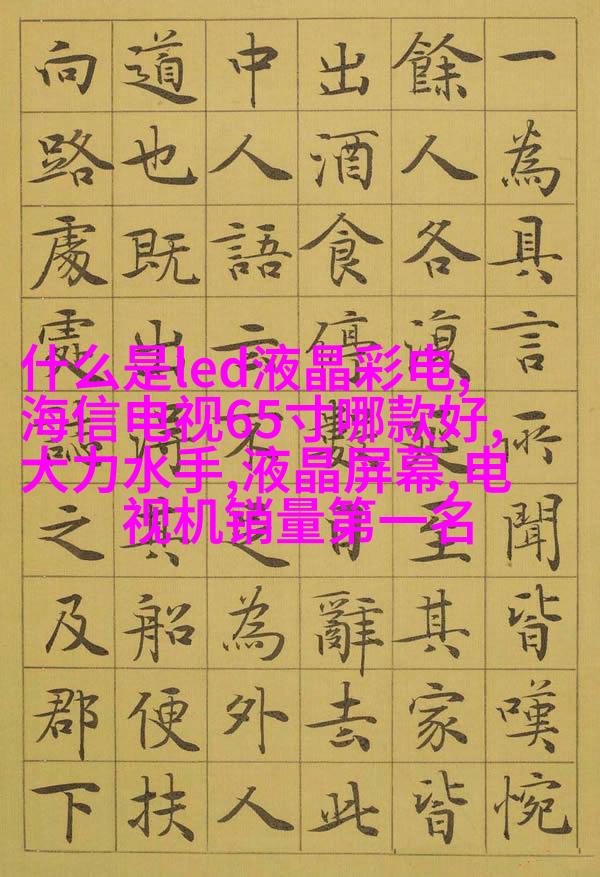 一為具言所聞皆嘆惋
餘人各復延至其家皆
出酒食停數日辭去此
中人語云不足為外人
道也既出得其船便扶
向路處處誌之及郡下
什么是led液晶彩电,
海信电视65寸哪款好,
大力水手,液晶屏幕,电
视机销量第一名